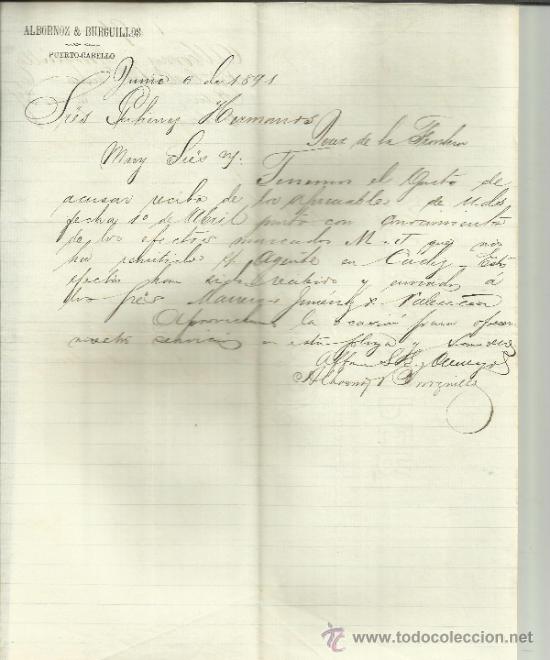 ALBORNOZ & BURGUILLOS
PUERTO-CABELLO
Junio 6 de 1891
Sres Hermanos
Jerez de la Frontera
Muy Sres n.
Tenemos el gusto de
acusar recibo de la apreciable de Udes
fecha 1º de Abril junto con conocimiento
de los efectos marcados M. J que nos
ha remitido Agente en Cadiz. Esto
efectos han sido recibido y enviado a
los Sres Jimenez Valencia
Aprovechamos la ocasión para ofrecer
servicio en esta plaza y
Albornoz & Burguillos
www.todocoleccion.net